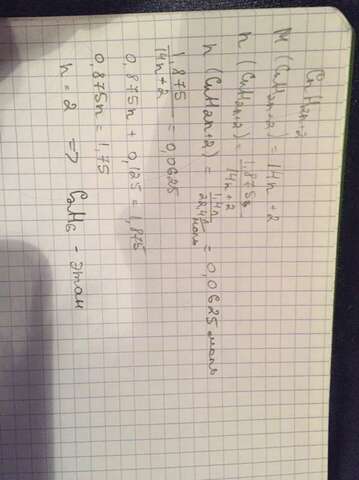 CnH2n+2
M (CnH2n+2) = 14n + 2
n (CnH2n+2) = 1,875г / 14n + 2
n (CnH2n+2) = 1,4л / 22,4 л/моль = 0,0625 моль
1,875 / 14n + 2 = 0,0625
0,875n + 0,125 = 1,875
0,875n = 1,75
n = 2 => C2H6 - этан